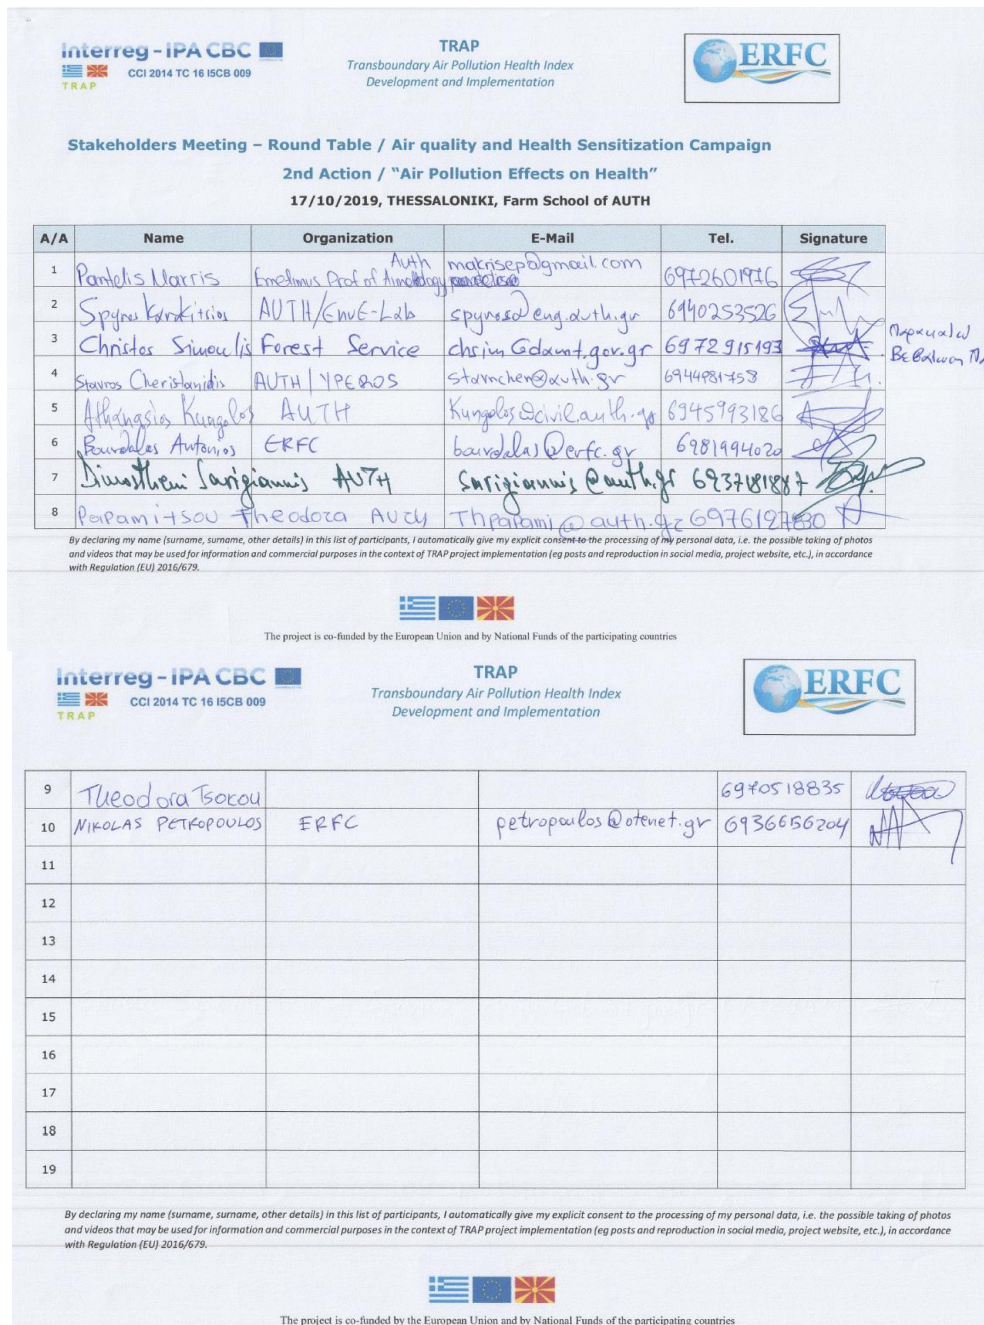 Interreg - IPA CBC
CCI 2014 TC 16 I5CB 009
TRAP
TRAP
Transboundary Air Pollution Health Index
Development and Implementation
ERFC
Stakeholders Meeting – Round Table / Air quality and Health Sensitization Campaign
2nd Action / “Air Pollution Effects on Health”
17/10/2019, THESSALONIKI, Farm School of AUTH
A/A Name Organization E-Mail Tel. Signature
1 Pantelis Emetimus Prof of Auth makrisep@gmail.com 6972601976
2 Spyros Karakitsios AUTH/EnvE-Lab spyros@eng.auth.gr 6940253526
3 Christos Simoulis Forest Service chsim@damt.gov.gr 6972915193
Παρακαλώ
Βεβαίωση
4 Stavros AUTH/YPEROS stavrchen@auth.gr 6944981758
5 Athanasios Kungolos AUTH Kungolos@civil.auth.gr 6945993186
6 Bourdalas Antonios ERFC bourdalas@erfc.gr 6981994020
7 Sarigiannis AUTH sarigiannis@auth.gr
8 Papamitsou Theodora AUTH Thpapami@auth.gr
By declaring my name (surname, surname, other details) in this list of participants, I automatically give my explicit consent to the processing of my personal data, i.e. the possible taking of photos
and videos that may be used for information and commercial purposes in the context of TRAP project implementation (eg posts and reproduction in social media, project website, etc.), in accordance
with Regulation (EU) 2016/679.
The project is co-funded by the European Union and by National Funds of the participating countries
Interreg - IPA CBC
CCI 2014 TC 16 I5CB 009
TRAP
TRAP
Transboundary Air Pollution Health Index
Development and Implementation
ERFC
9 Theodora Tsokou 6970518835
10 NIKOLAS PETROPOULOS ERFC petropoulos@otenet.gr 6936656204
11
12
13
14
15
16
17
18
19
By declaring my name (surname, surname, other details) in this list of participants, I automatically give my explicit consent to the processing of my personal data, i.e. the possible taking of photos
and videos that may be used for information and commercial purposes in the context of TRAP project implementation (eg posts and reproduction in social media, project website, etc.), in accordance
with Regulation (EU) 2016/679.
The project is co-funded by the European Union and by National Funds of the participating countries